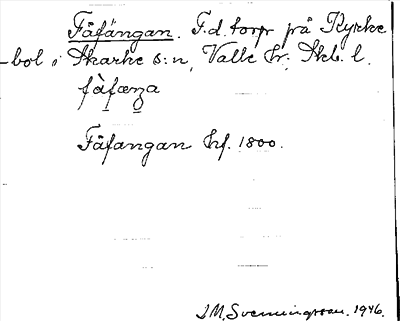 Fåfängan. F.d. torp på Kyrke
-bol i Skarke s:n, Valle hr; Skb. l.
fåfæŋa
Fåfangan hf. 1800.
I.M. Svenningsson. 1946.